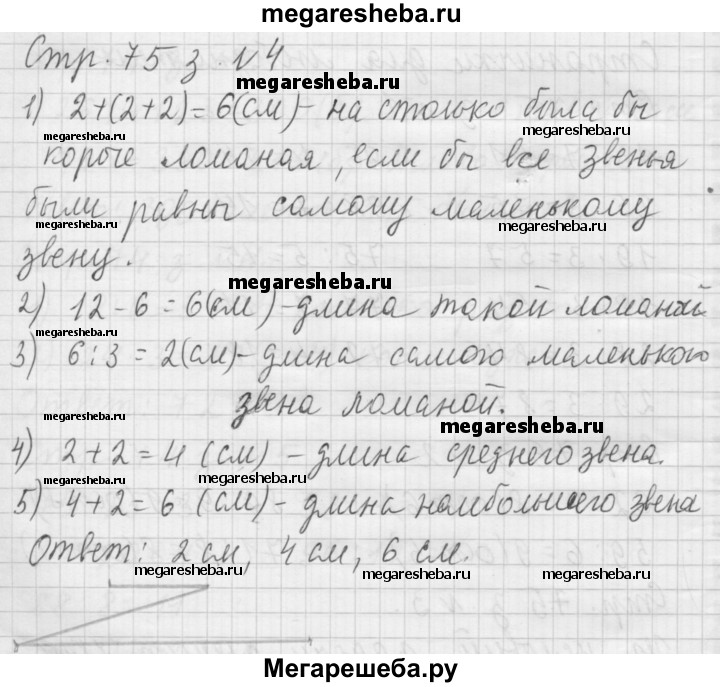 megaresheba.ru
Стр. 75 з. №4
megaresheba.ru
1) 2+(2+2)=6(см)- на столько была бы
megaresheba.ru
megaresheba.ru
короче ломаная, если бы все звенья
были равны самому маленькому
megaresheba.ru
megaresheba.ru
звену.
megaresheba.ru
2) 12-6=6(см)-длина такой ломаной
megaresheba.ru
3) 6:3=2(см)-длина самого маленького
звена ломаной.
megaresheba.ru
megaresheba.ru
4) 2+2=4 (см) - длина среднего звена.
megaresheba.ru
megaresheba.ru
5) 4+2=6 (см)- длина наибольшего звена
megaresheba.ru
Ответ: 2 см, 4 см, 6 см.
megaresheba.ru
megaresheba.ru
megaresheba.ru
Мегарешеба.ру